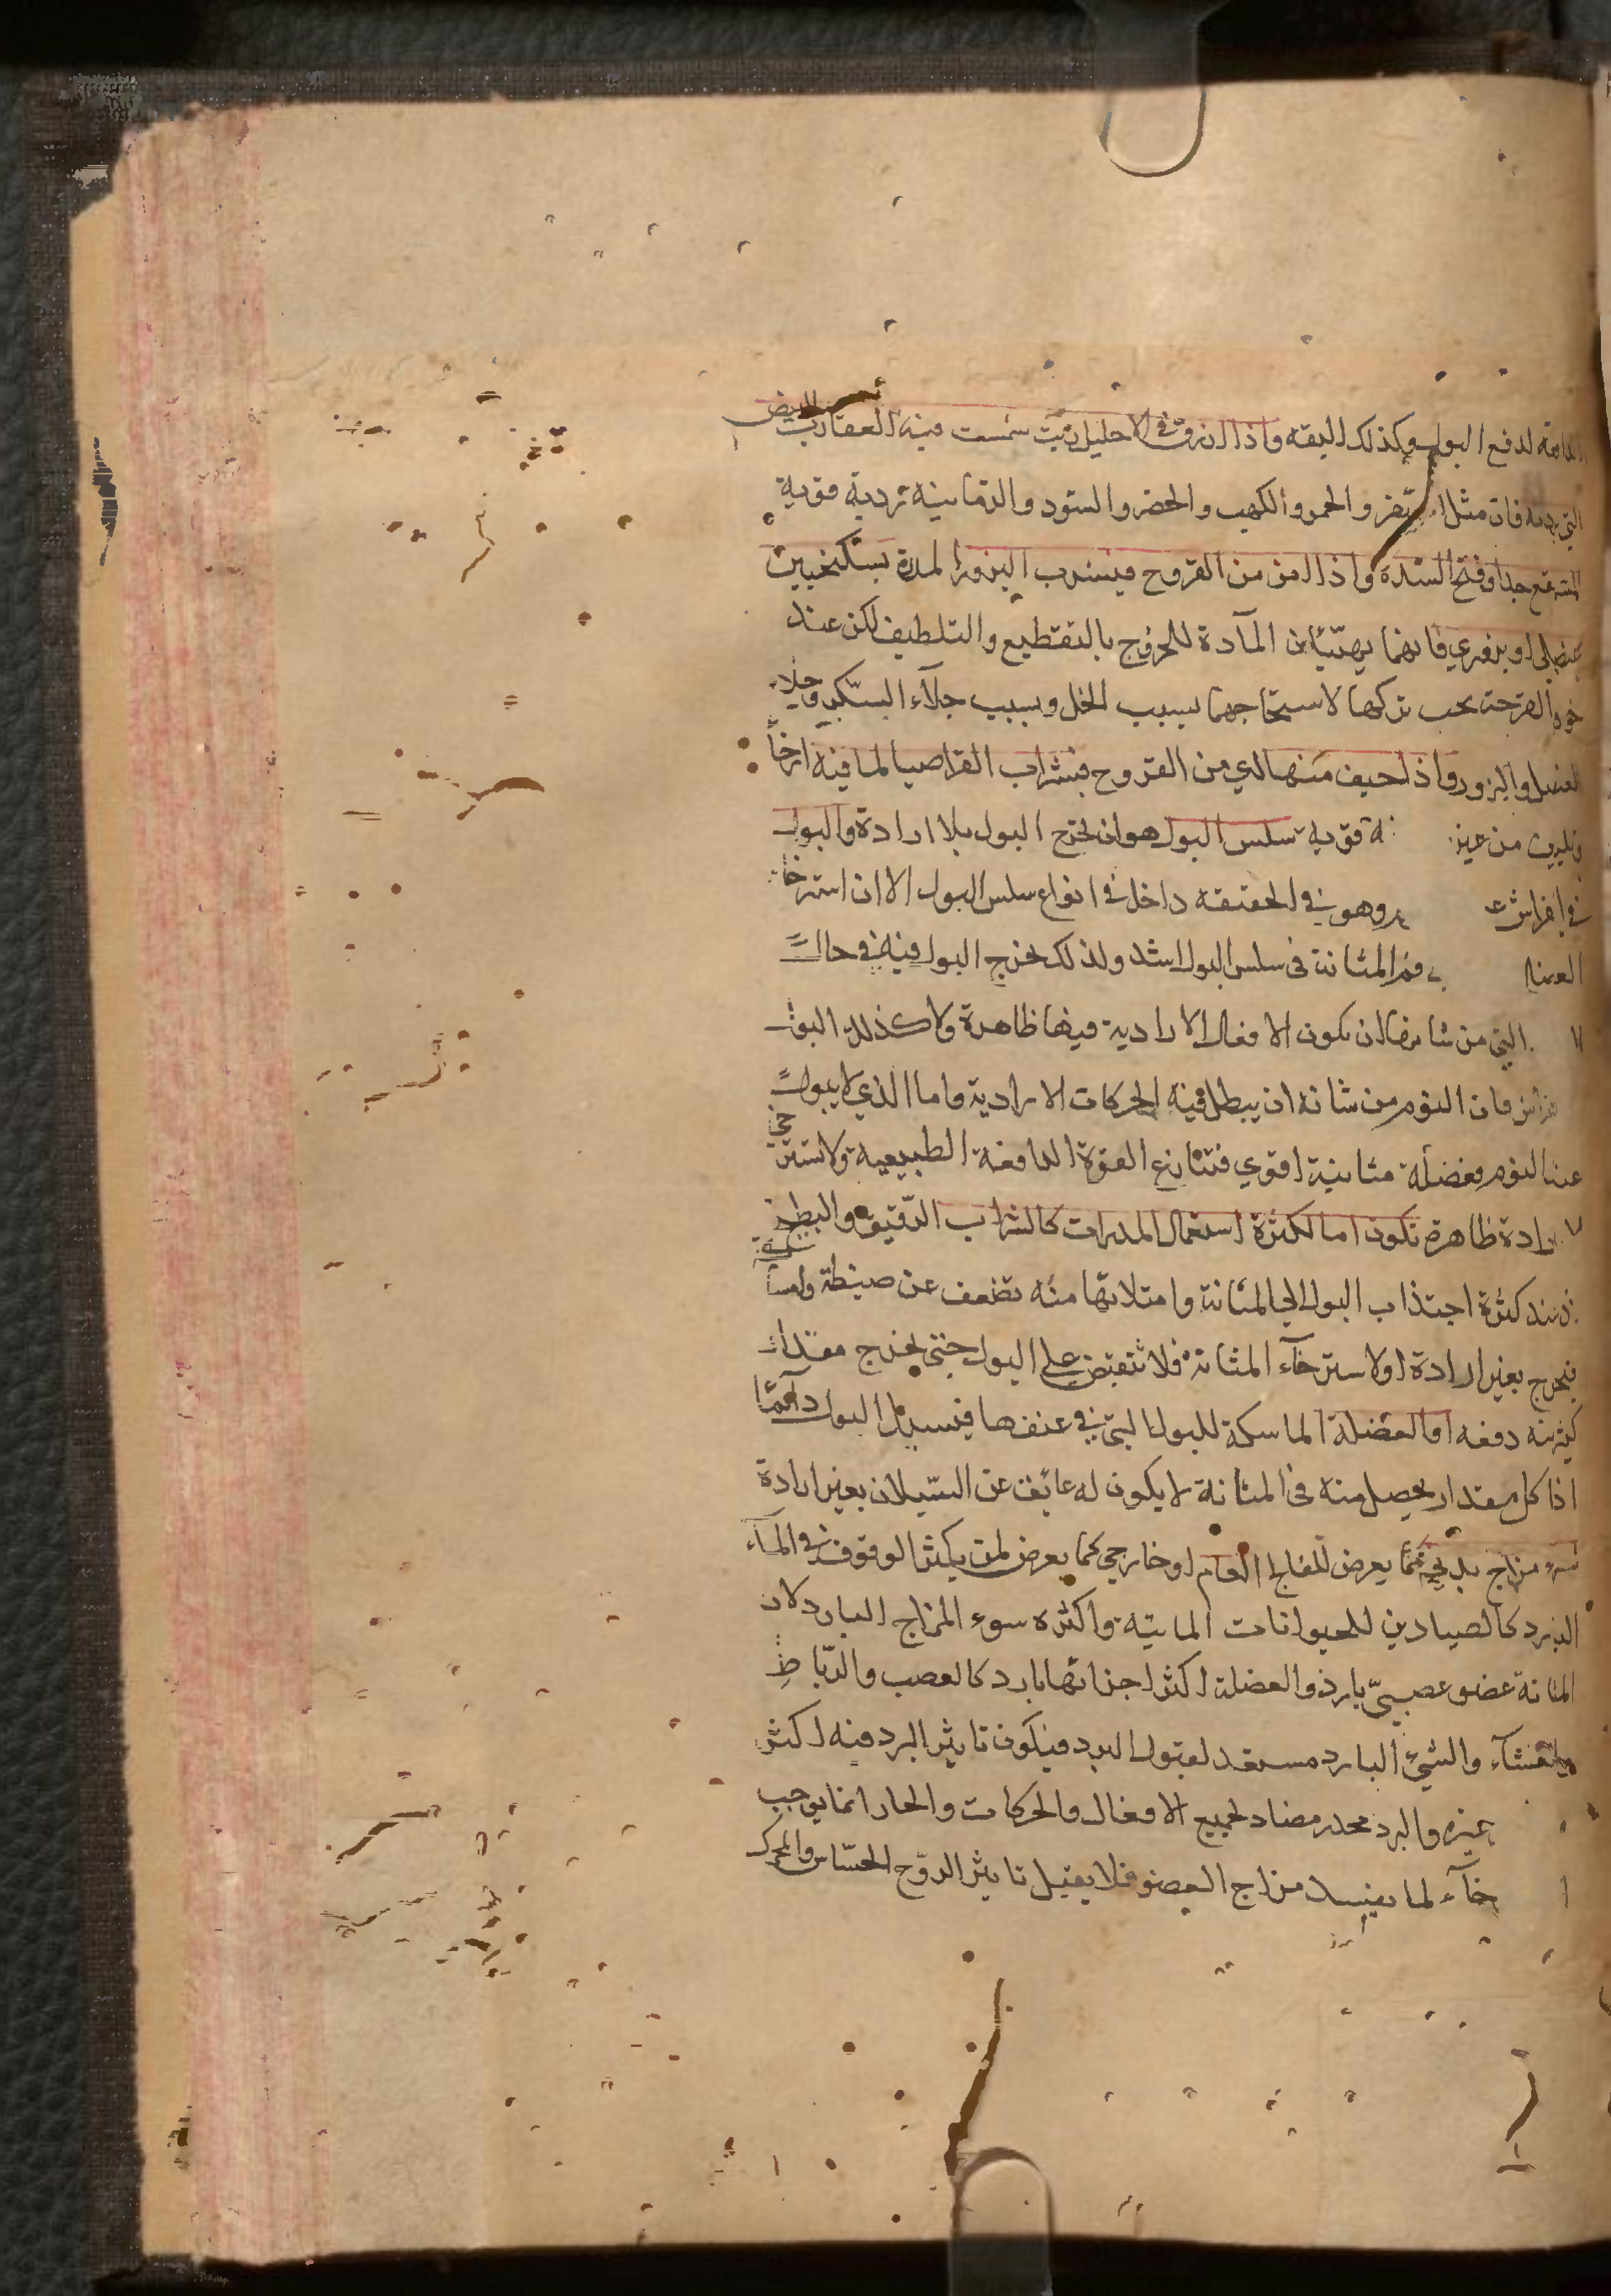 الدافعة لدفع البول وكذلك البقه واذا ازرق في الاحليل زيت شمست فيه العقارب البيض
التي برديه فان مثل الصفر والحمر والكهب والخضر والسود والدقانية ترديه قوية
جدا وفتح السدة واذا امن من القروح فيشرب البزور المدرة بسكنجبين
عنصلى او بزورى فانهما يهيّئان المآدة للخروج بالتقطيع والتلطيف لكن عند
خوف القرحة يجب تركها لاستحاجهما بسبب الخل وبسبب جلآء السكر وجلاء
العنصل والبزور واذا خيف منها لدي من القروح فبشراب القراصيا لما فيه ارخآ
وتليين من غير قوية سلس البول هو ان يخرج البول بلا ارادة والبول
في الفراش وهو في الحقيقة داخل في انواع سلس البول الا ان استرخآ
العضلة فم المثانة فى سلس البول اشد ولذلك يخرج البول فيه في حال
التي من شانها ان يكون الافعال الارادية فيها ظاهرة ولا كذلك البول
فراش فان النوم من شانه ان يبطل فيه الحركات الارادية واما الذي لا يبول
عند النوم فعضلة مثانية اقوي فتمانع القوة الدافعة الطبيعية ولا تسترخي
ارادة ظاهرة تكون اما لكثرة استعمال المدرات كالشراب الرّقيق والبطيخ
عند كثرة اجتذاب البول الي المثانة وامتلائها منه تضعف عن ضبطه وامساكه
فيخرج بغير ارادة او لاسترخآء المثانة فلا تنقبض على البول حتى يخرج مقدار
كثرته دفعه او العضلة الماسكة للبول التي في عنقها فيسيل البول دآئما
اذا كل مقدار يحصل منه فى المثانة لا يكون له عائق عن السّيلان بغير ارادة
سوء مزاج بدني كما يعرض للفالج العام او خارجي كما يعرض لمن يكثر الوقوف في المآء
البارد كالصيادين للحيوانات المائية واكثره سوء المزاج البارد لان
المثانة عضو عصبيّ بارد والعضلة اكثر اجزائها بارد كالعصب والرّباط
والغشآء والشيء البارد مستعد لقبول البرد فيكون تاثير البرد فيه اكثر
غيره والبرد مخدر مضاد لجميع الافعال والحركات والحار انما يوجب
خآء لما يفسد مزاج العضو فلا يقبل تاثير الروح الحسّاس والمحرك